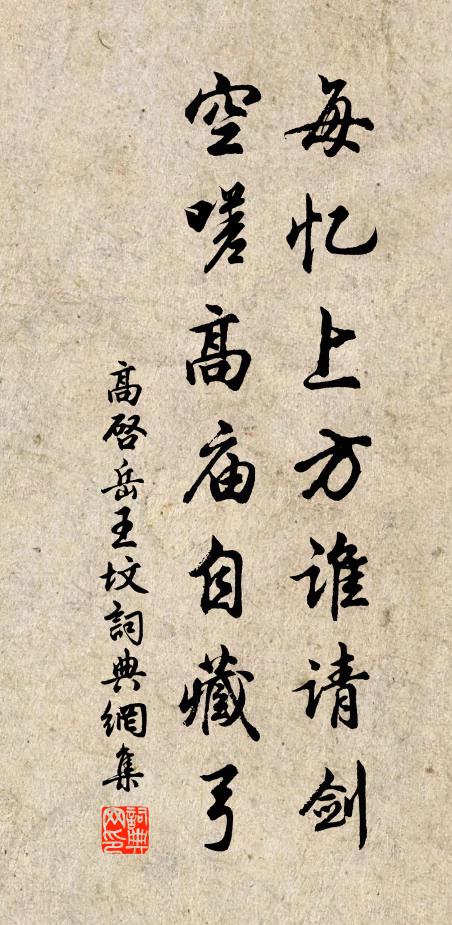 每忆上方谁请剑
空嗟高庙自藏弓
高启岳王坟詞典網集
詞典网印